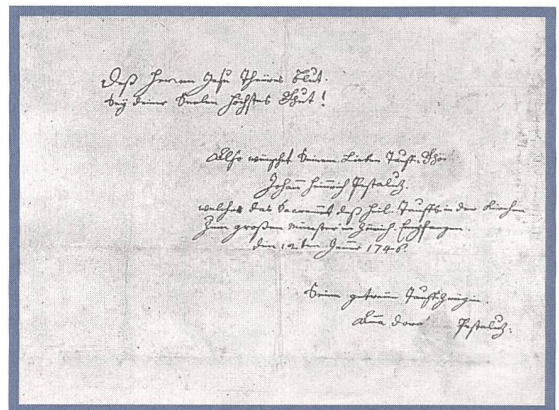 Deß Herren Jesu Theures Blut.
Sey deiner Seelen höchstes Guht!
Also wünscht Seinem Lieben Tauff-
Johann Heinrich Pestaluz.
welcher das Sacrament deß heil. Tauffs in der Kirchen
Zum großen Münster in Zürich Empfangen.
den 12ten Jenner 1746.
Seine getreüe Tauffzeügin.
Pestaluz.